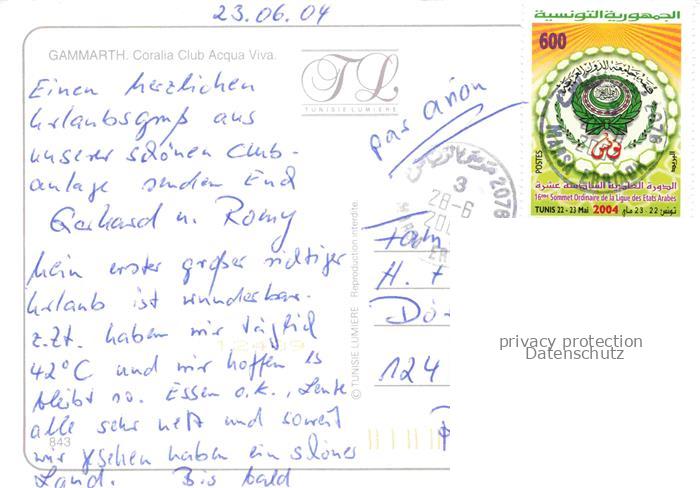 23.06.04
GAMMARTH. Coralia Club Acqua Viva.
TL
TUNISIE LUMIERE
Einen herzlichen
Urlaubsgruß aus
unserer schönen Club-
anlage senden Euch
Gerhard u. Romy
Mein erster großer richtiger
Urlaub ist wunderbar.
z.Zt. haben wir täglich
42°C und wir hoffen es
bleibt so. Essen o.k., Leute
alle sehr nett und soweit
wir gesehen haben ein schönes
Land. Bis bald
843
© TUNISIE LUMIERE Reproduction interdite.
par avion
2078
3
28-6
Fam
H.
Dö
124
الجمهورية التونسية
600
قمة جامعة الدول العربية
تونس
POSTES
البريد
الدورة العادية السادسة عشرة
16ème Sommet Ordinaire de la Ligue des Etats Arabes
TUNIS 22 - 23 Mai 2004 تونس: 22 - 23 مام
privacy protection
Datenschutz